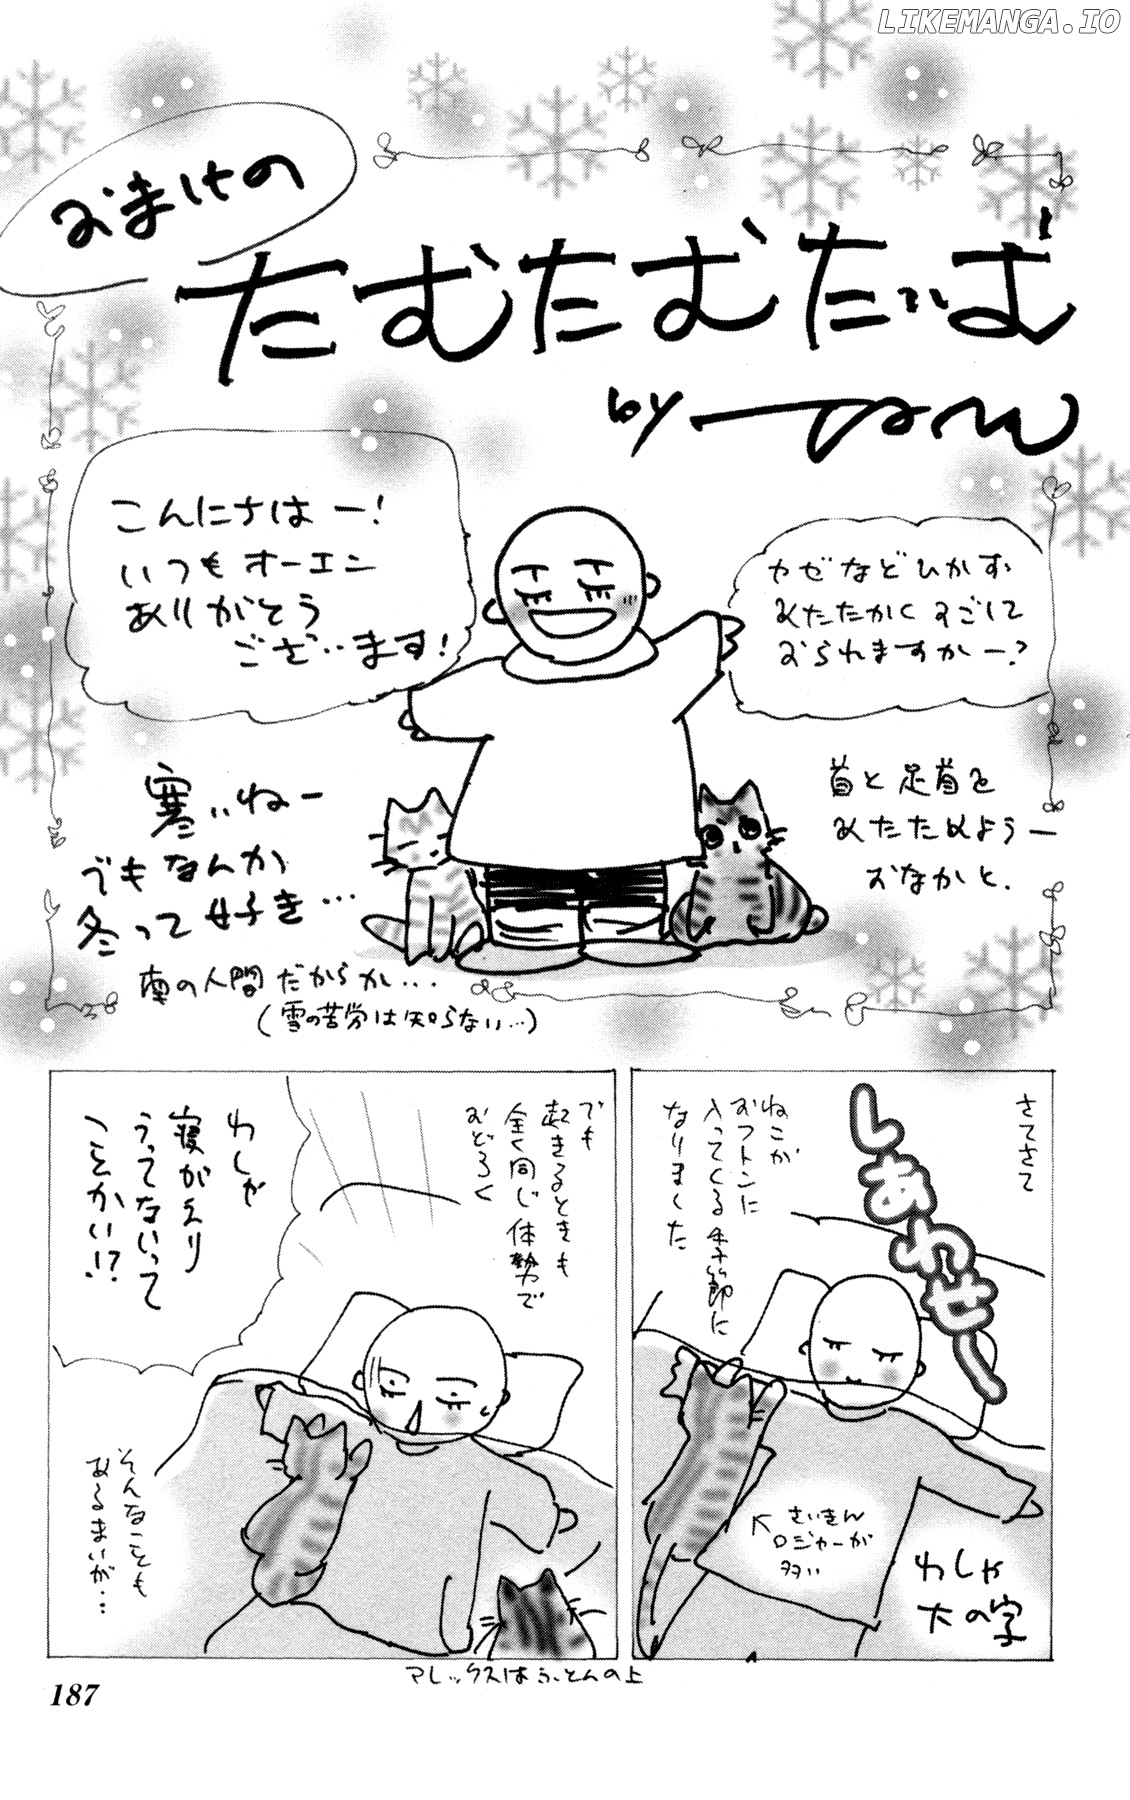 LIKEMANGA.IO
おまけの
たむたむたいむ
by
カゼなどひかず
あたたかくすごして
おられますかー?
こんにちはー!
いつもオーエン
ありがとう
ございます!
首と足首を
あたためようー
おなかと、
寒いねー
でもなんか
冬って好き…
南の人間だからか…
(雪の苦労は知らない…)
さてさて
しあわせー
ねこが
おフトンに
入ってくる季節に
なりました
さいきん
ロジャーが
多い
わしゃ
大の字
でも
起きるときも
全く同じ体勢で
おどろく
わしゃ
寝がえり
うってないって
ことかい!?
そんなことも
あるまいが…
アレックスはふとんの上
187